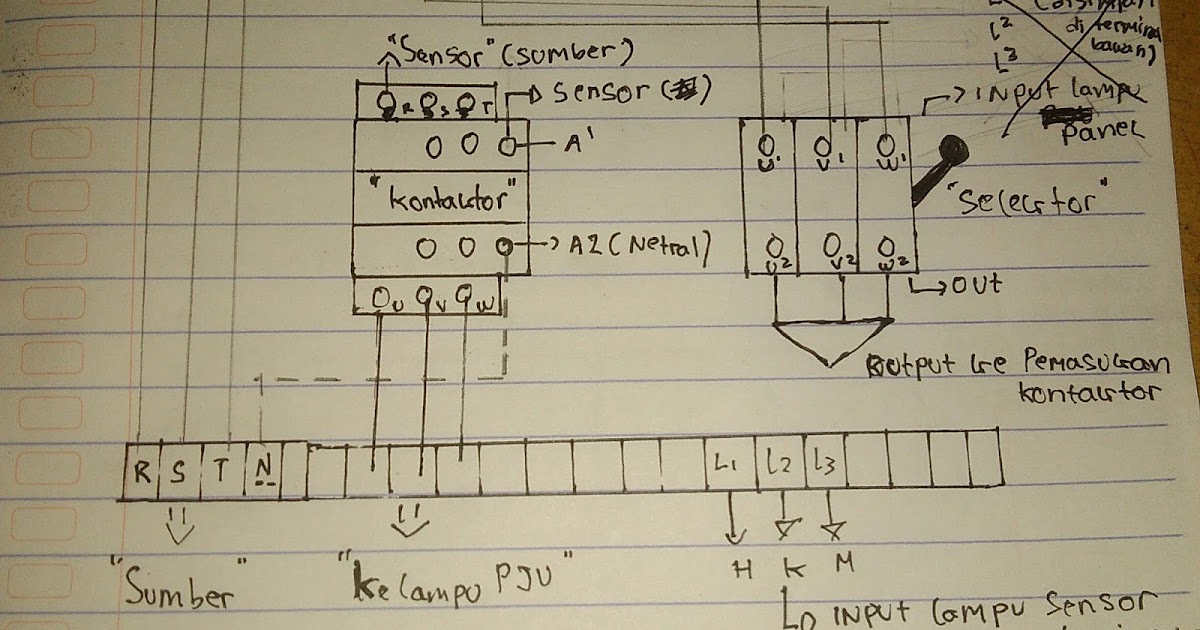 L²
di termina
L³
bawah)
"Sensor" (sumber)
R S T
Sensor ( )
A¹
"Kontaktor"
A2 (Netral)
U V W
INPUT lampu
Panel
U¹ V¹ W¹
"Selektor"
U² V² W²
OUt
Output ke Pemasukan
kontaktor
R S T N L1 L2 L3
"Sumber"
"Ke lampu PJU"
H K M
INPUT lampu Sensor